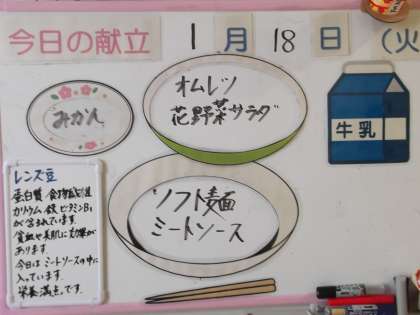 今日の献立 1月18日(火
オムレツ
花野菜サラダ
みかん
牛乳
ソフト麺
ミートソース
レンズ豆
蛋白質 食物繊維
カリウム、鉄、ビタミンB1
が含まれています。
貧血や美肌に効果が
あります。
今日は ミートソースの中に
入っています。
栄養満点です。